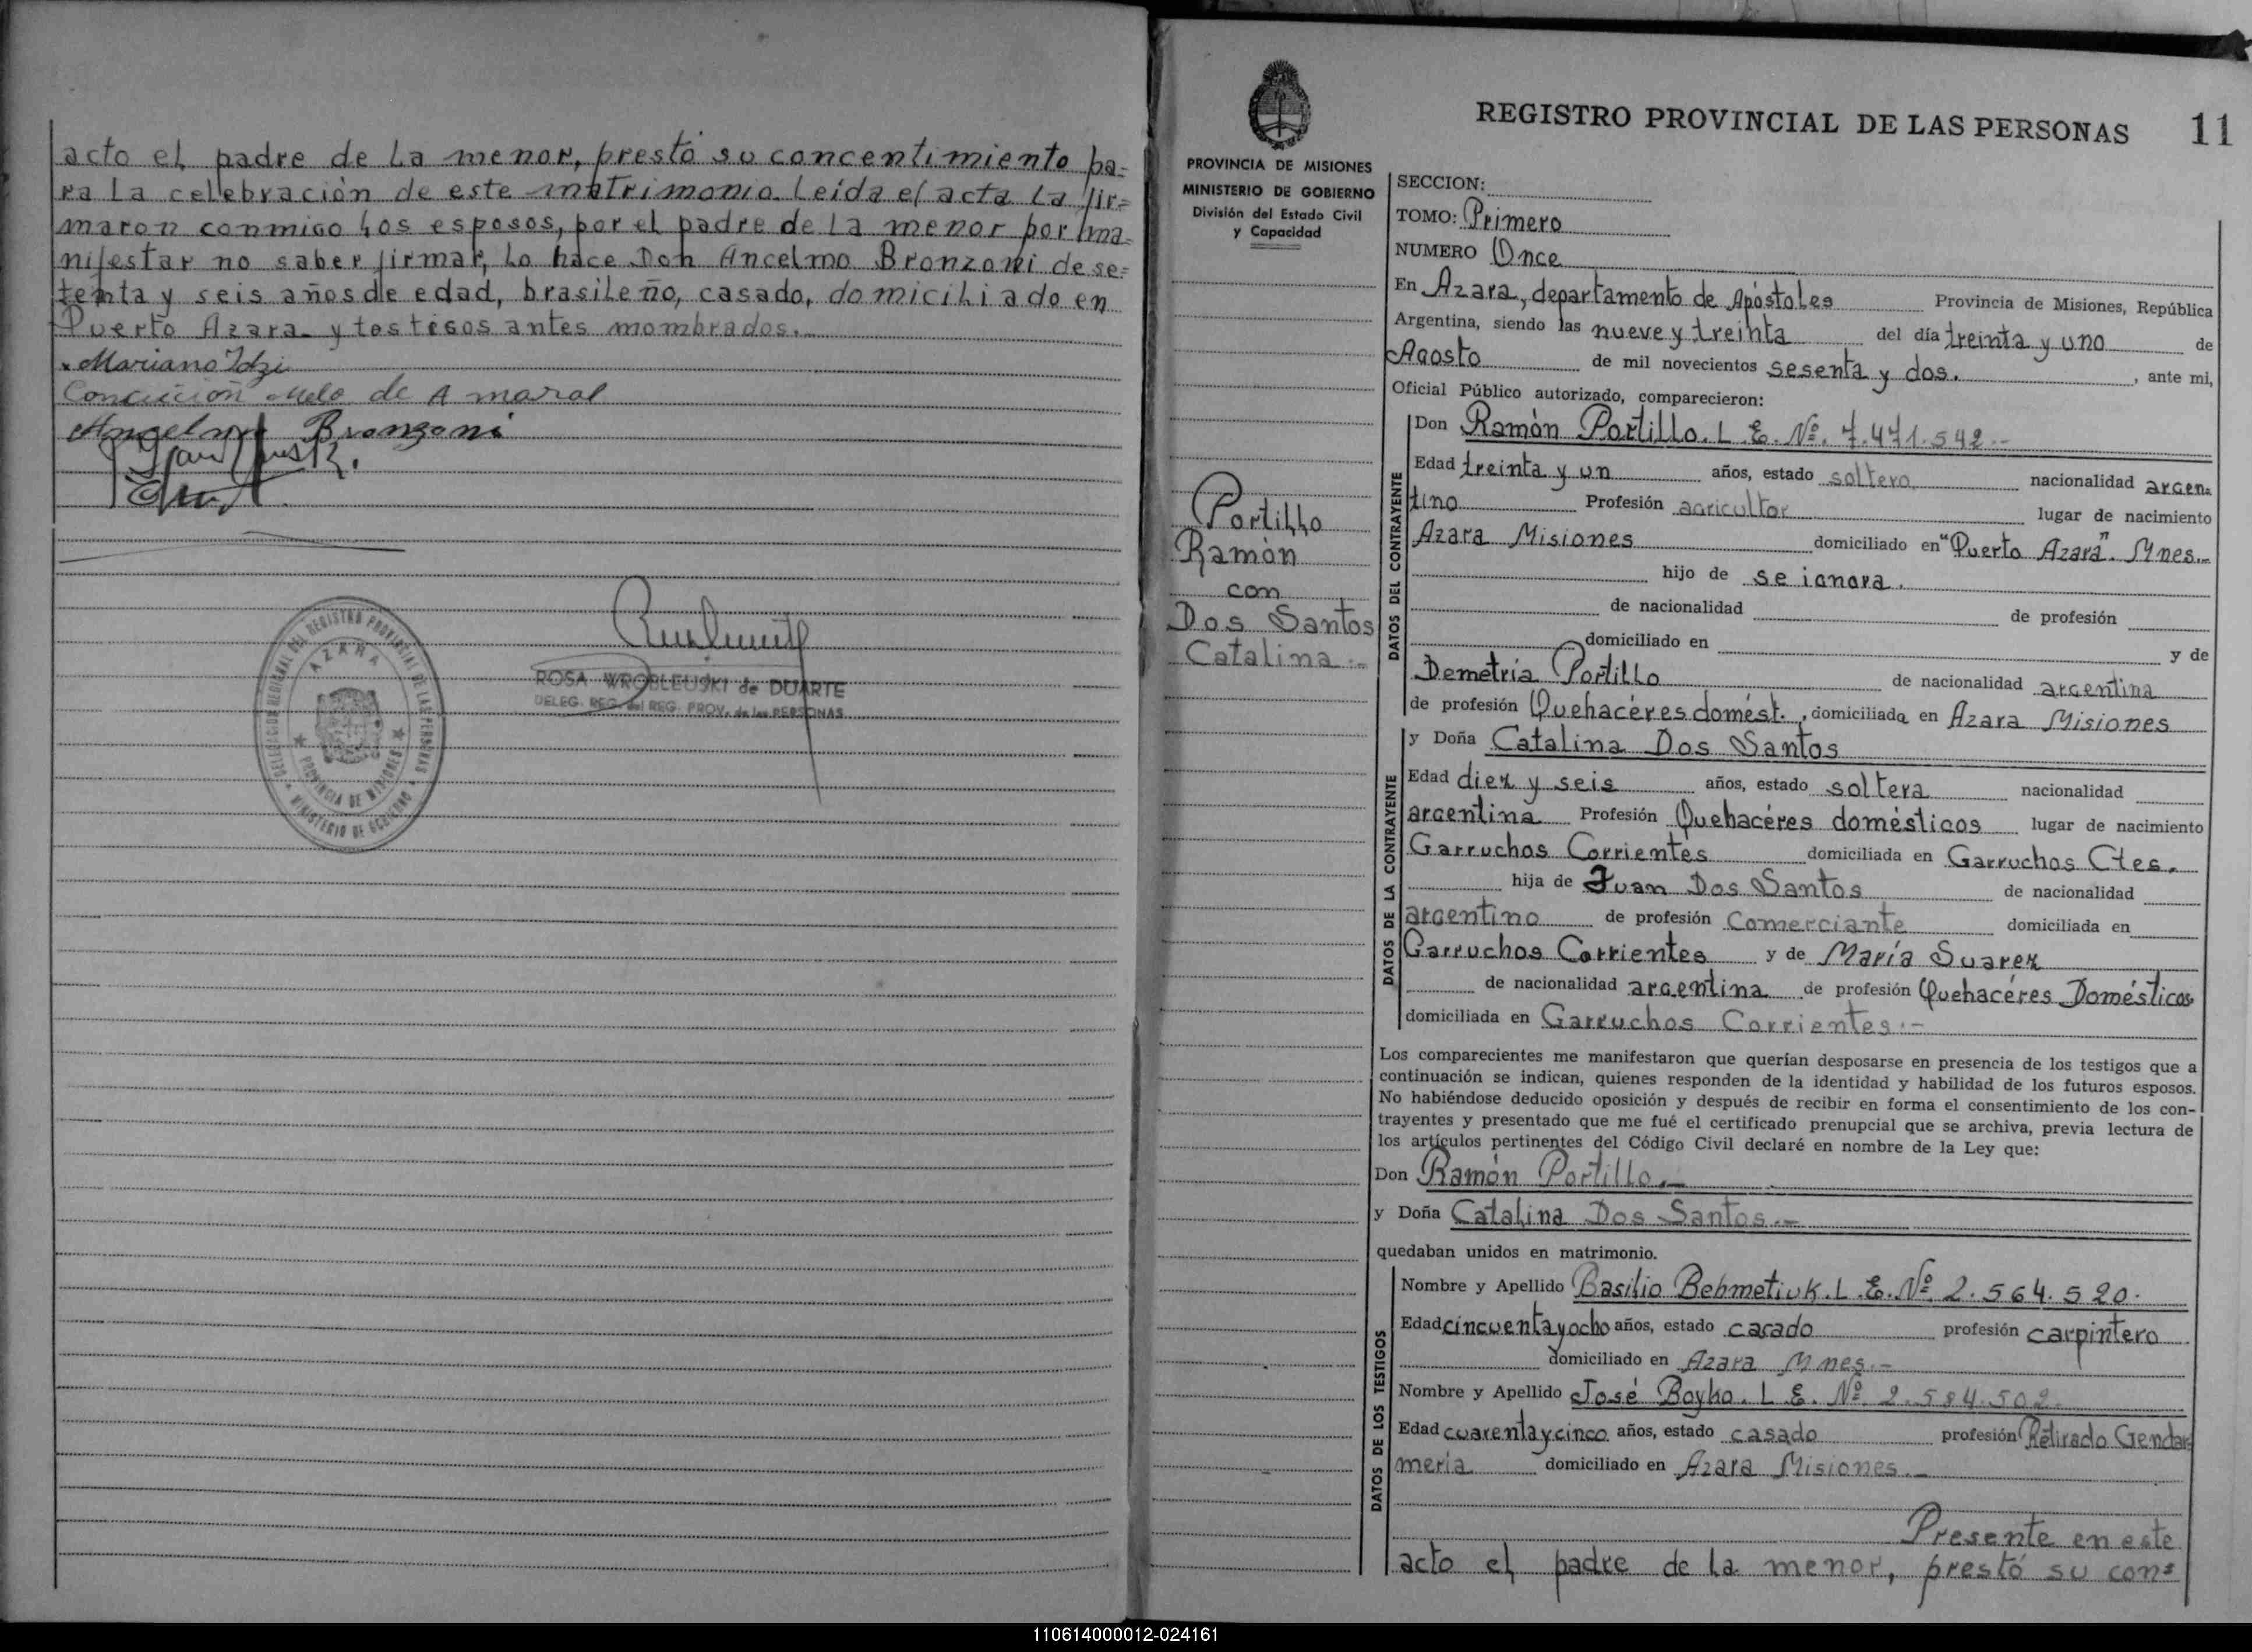 acto el padre de la menor, prestó su concentimiento pa=
ra la celebración de este matrimonio. Leída el acta la fir=
maron conmigo los esposos, por el padre de la menor por ma=
nifestar no saber firmar, lo hace Don Ancelmo Bronzoni de se=
tenta y seis años de edad, brasileño, casado, domiciliado en
Puerto Azara y testigos antes mombrados.
Mariano Idzi
Concición Melo de Amaral
Angelmo Bronzoni
DELEGACION REGIONAL DEL REGISTRO PROVINCIAL DE LAS PERSONAS
AZARA
PROVINCIA DE MISIONES
MINISTERIO DE GOBIERNO
ROSA WROBLEUSKI de DUARTE
DELEG. REG. del REG. PROV. de las PERSONAS
REGISTRO PROVINCIAL DE LAS PERSONAS 11
PROVINCIA DE MISIONES
MINISTERIO DE GOBIERNO
División del Estado Civil
y Capacidad
Portillo
Ramón
con
Dos Santos
Catalina.-
SECCION:
TOMO: Primero
NUMERO Once
En Azara, departamento de Apóstoles Provincia de Misiones, República
Argentina, siendo las nueve y treinta del día treinta y uno de
Agosto de mil novecientos sesenta y dos. , ante mi,
Oficial Público autorizado, comparecieron:
DATOS DEL CONTRAYENTE
Don Ramón Portillo. L.E. Nº. 7.471.542.-
Edad treinta y un años, estado soltero nacionalidad argen=
tino Profesión agricultor lugar de nacimiento
Azara Misiones domiciliado en "Puerto Azara". Mnes.-
hijo de se ignora.
de nacionalidad de profesión
domiciliado en y de
Demetria Portillo de nacionalidad argentina
de profesión Quehacéres domést. , domiciliada en Azara Misiones
DATOS DE LA CONTRAYENTE
y Doña Catalina Dos Santos
Edad diez y seis años, estado soltera nacionalidad
argentina Profesión Quehacéres domésticos lugar de nacimiento
Garruchos Corrientes domiciliada en Garruchos Ctes.
hija de Juan Dos Santos de nacionalidad
argentino de profesión Comerciante domiciliada en
Garruchos Corrientes y de María Suarez
de nacionalidad argentina de profesión Quehacéres Domésticos
domiciliada en Garruchos Corrientes.-
Los comparecientes me manifestaron que querían desposarse en presencia de los testigos que a
continuación se indican, quienes responden de la identidad y habilidad de los futuros esposos.
No habiéndose deducido oposición y después de recibir en forma el consentimiento de los con-
trayentes y presentado que me fué el certificado prenupcial que se archiva, previa lectura de
los artículos pertinentes del Código Civil declaré en nombre de la Ley que:
Don Ramón Portillo.-
y Doña Catalina Dos Santos.-
quedaban unidos en matrimonio.
DATOS DE LOS TESTIGOS
Nombre y Apellido Basilio Behmetiuk. L.E. Nº 2.564.520.
Edad cincuenta y ocho años, estado casado profesión carpintero
domiciliado en Azara Mnes.-
Nombre y Apellido José Boyko. L.E. Nº 2.584.502.
Edad cuarenta y cinco años, estado casado profesión Retirado Gendar=
meria domiciliado en Azara Misiones.-
Presente en este
acto el padre de la menor, prestó su con=
110614000012-024161